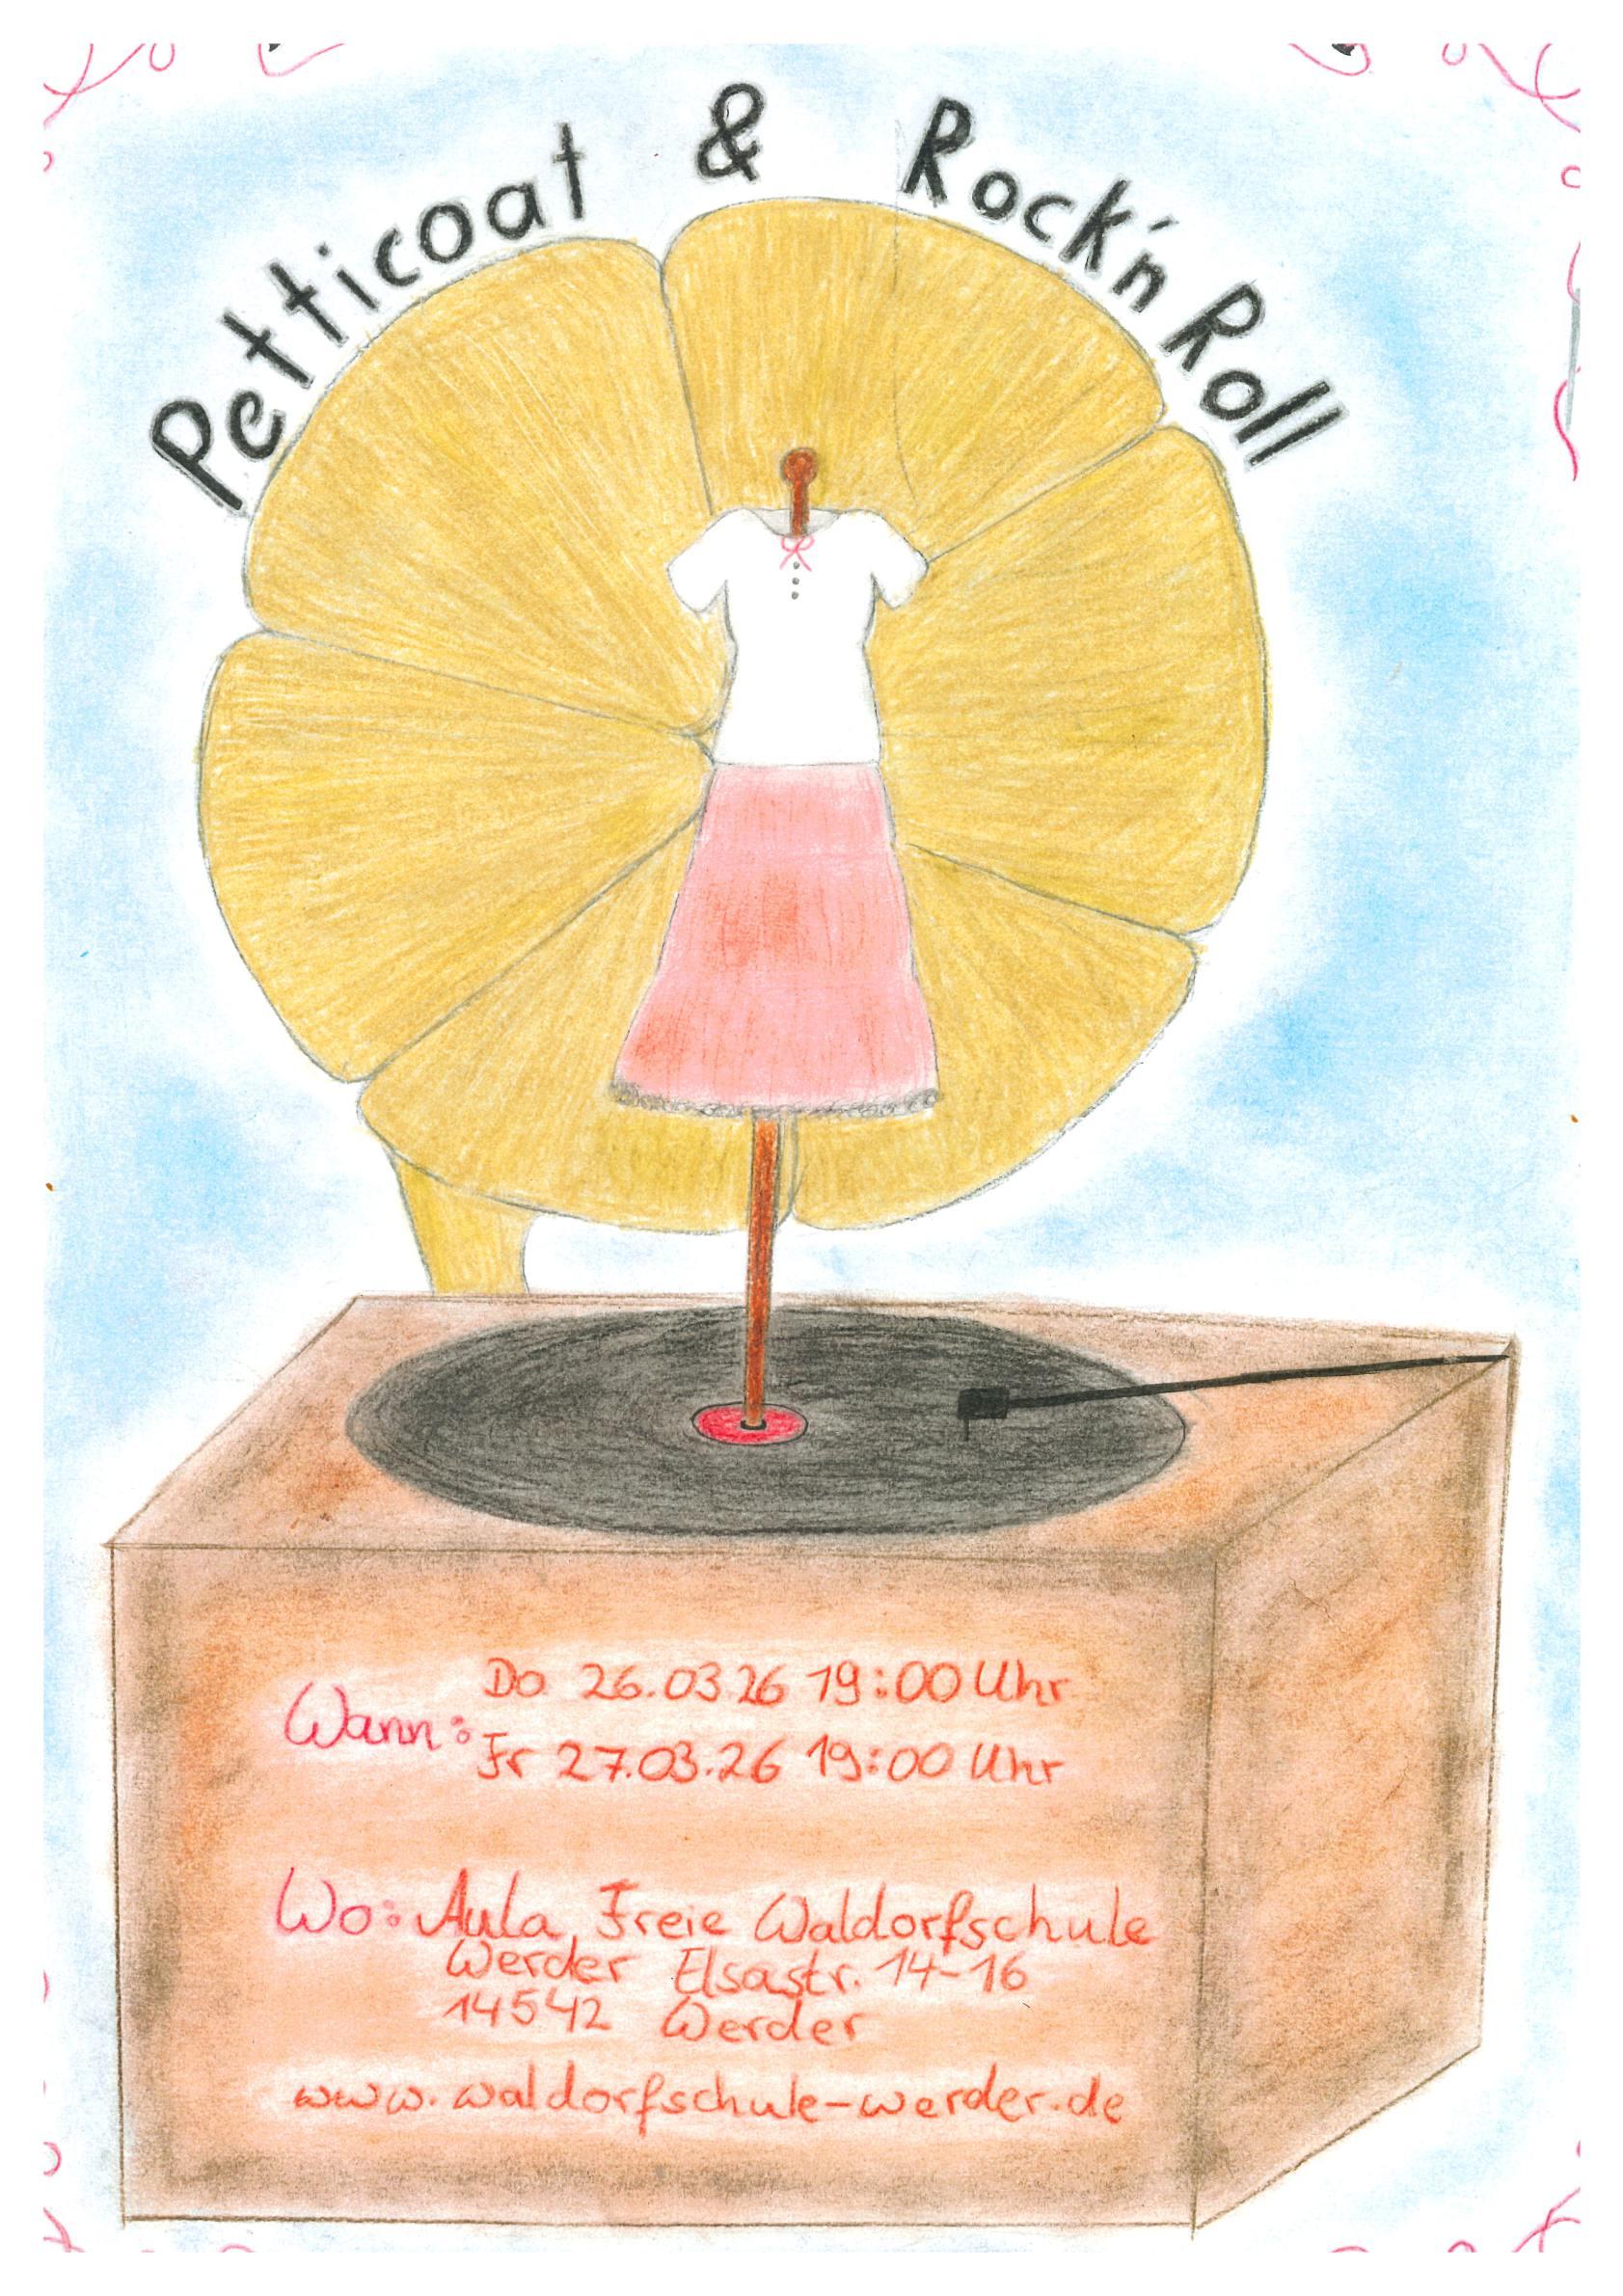 Petticoat & Rock'n Roll
Wann:
Do 26.03.26 19:00 Uhr
Fr 27.03.26 19:00 Uhr
Wo: Aula Freie Waldorfschule
Werder Elsastr. 14-16
14542 Werder
www.waldorfschule-werder.de